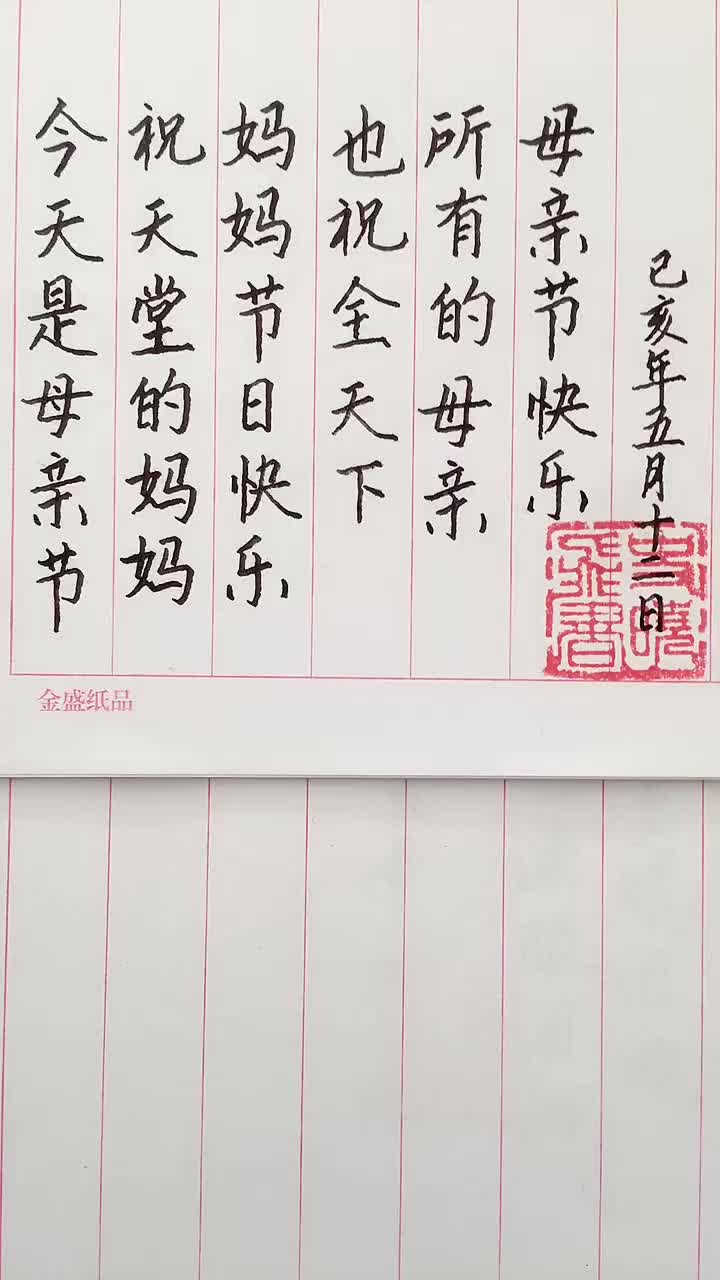 今天是母亲节
祝天堂的妈妈
妈妈节日快乐
也祝全天下
所有的母亲
母亲节快乐
己亥年五月十二日
金盛纸品